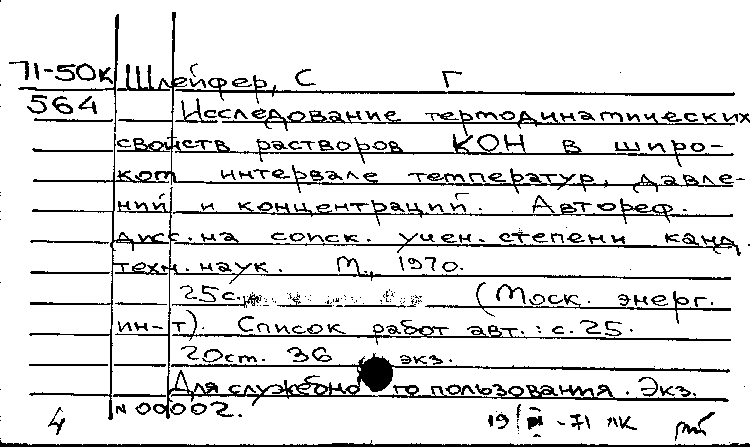 71-50к Шлейфер, С Г
564 Исследование термодинамических
свойств растворов КОН в широ-
ком интервале температур, давле-
ний и концентраций. Автореф.
дисс. на соиск. учен. степени канд.
техн. наук. М., 1970.
25с. (Моск. энерг.
ин-т). Список работ авт.: с. 25.
20см. 36 экз.
Для служебно го пользования. Экз.
4 N 00002. 19/ -71 ЛК